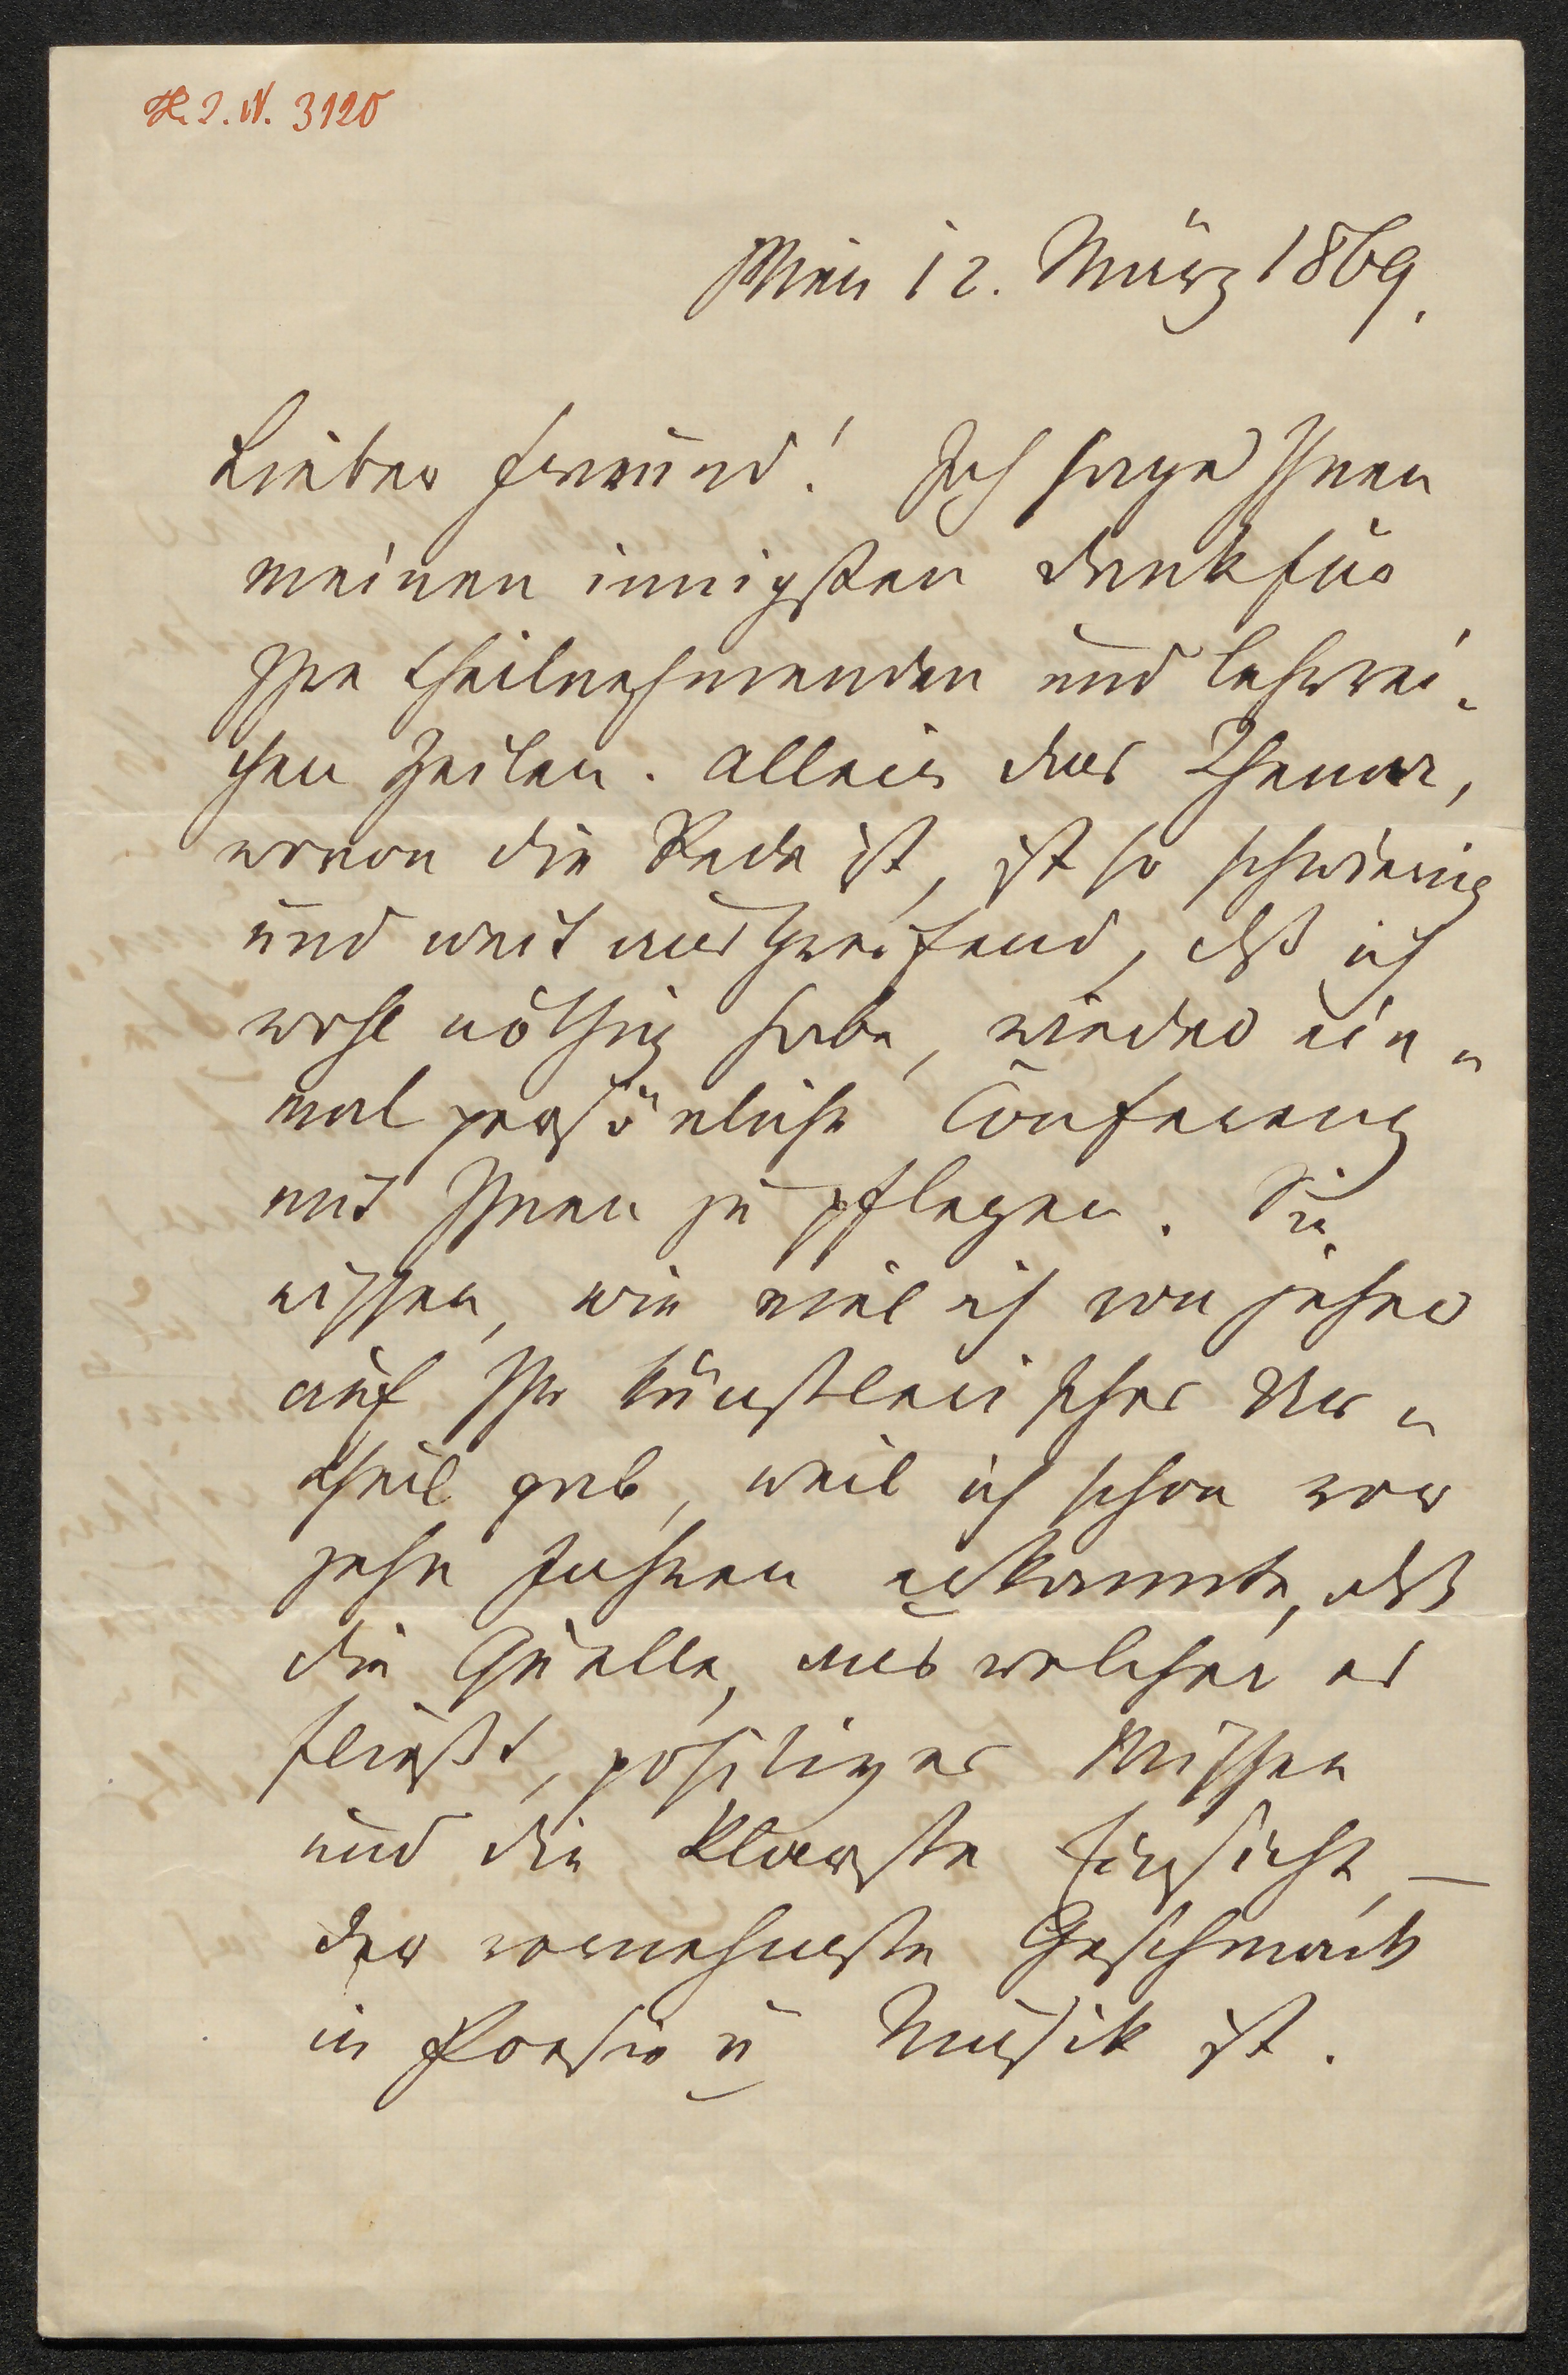 H. I. N. 3120
Wien 12. März 1869.
Lieber Freund! Ich sage Ihnen
meinen innigsten Dank für
Ihre theilnehmenden und lehrrei-
chen Zeilen. Allein das Thema,
wovon die Rede ist, ist so schwierig
und weit ausgreifend, dß ich
wohl nöthig habe, wieder ein-
mal persönliche Conferenz
mit Ihnen zu pflegen. Sie
wissen, wie viel ich von jeher
auf Ihr künstlerisches Ur-
theil gab, weil ich schon vor
zehn Jahren erkannte, dß
die Quelle, aus welcher es
fließt, positives Wissen
und die klarste Einsicht, —
der vornehmste Geschmack
in Poesie u Musik ist.